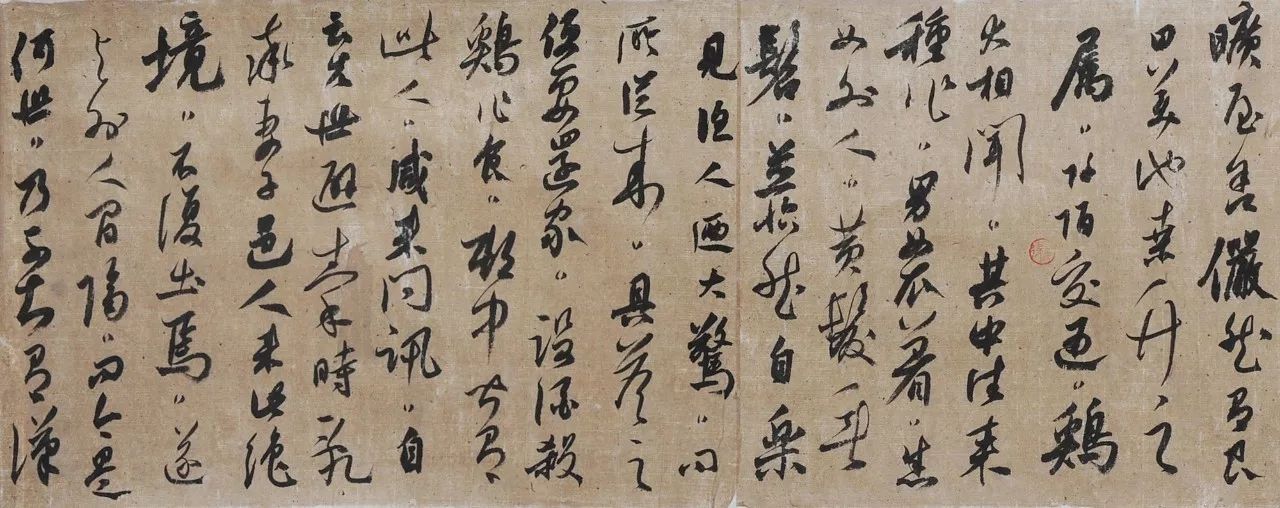 曠屋舍儼然有良
田美池桑竹之
屬阡陌交通鷄
犬相聞其中往來
種作男女衣著悉
如外人黃髮垂
髫並怡然自樂
見漁人廼大驚問
所從來具答之
便要還家設酒殺
鷄作食村中聞有
此人咸來問訊自
云先世避秦時亂
率妻子邑人來此絕
境不復出焉遂
與外人間隔問今是
何世乃不知有漢